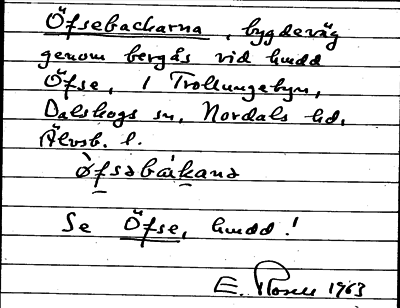 Öfsebackarna, bygdeväg
genom bergås vid hmdd
Öfse, i Trollungebyn,
Dalskogs sn, Nordals hd,
Älvsb. l.
Se Öfse, hmdd!
E. 1963